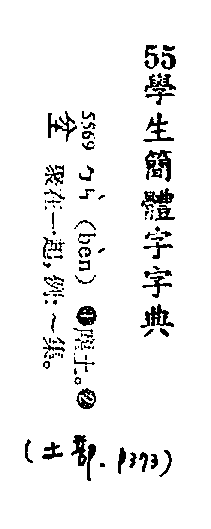 55學生簡體字字典
5569 ㄅㄣˋ (bèn) ❶塵土。❷
坌 聚在一起,例:~集。
(土部. P373)